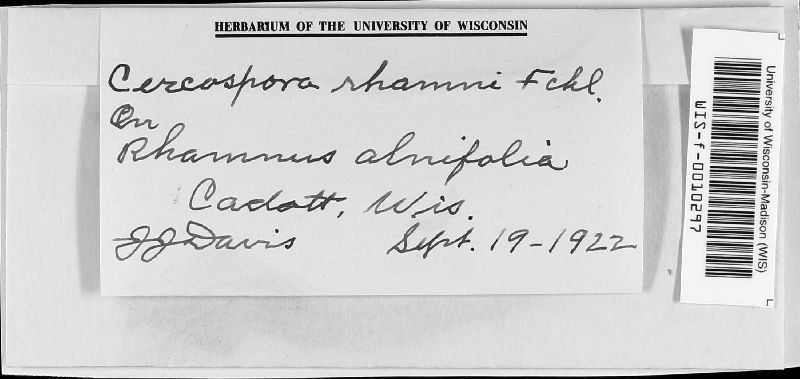 HERBARIUM OF THE UNIVERSITY OF WISCONSIN
Cercospora rhamni Fckl.
On
Rhamnus alnifolia
Cadott, Wis.
JJDavis Sept. 19-1922
University of Wisconsin-Madison (WIS)
WIS-f-0010297